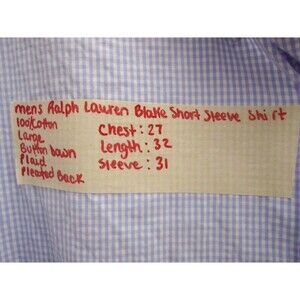 mens Ralph Lauren Blake Short Sleeve Shirt
100%Cotton
Large
Button Down
Plaid
Pleated Back
Chest: 27
Length: 32
Sleeve: 31